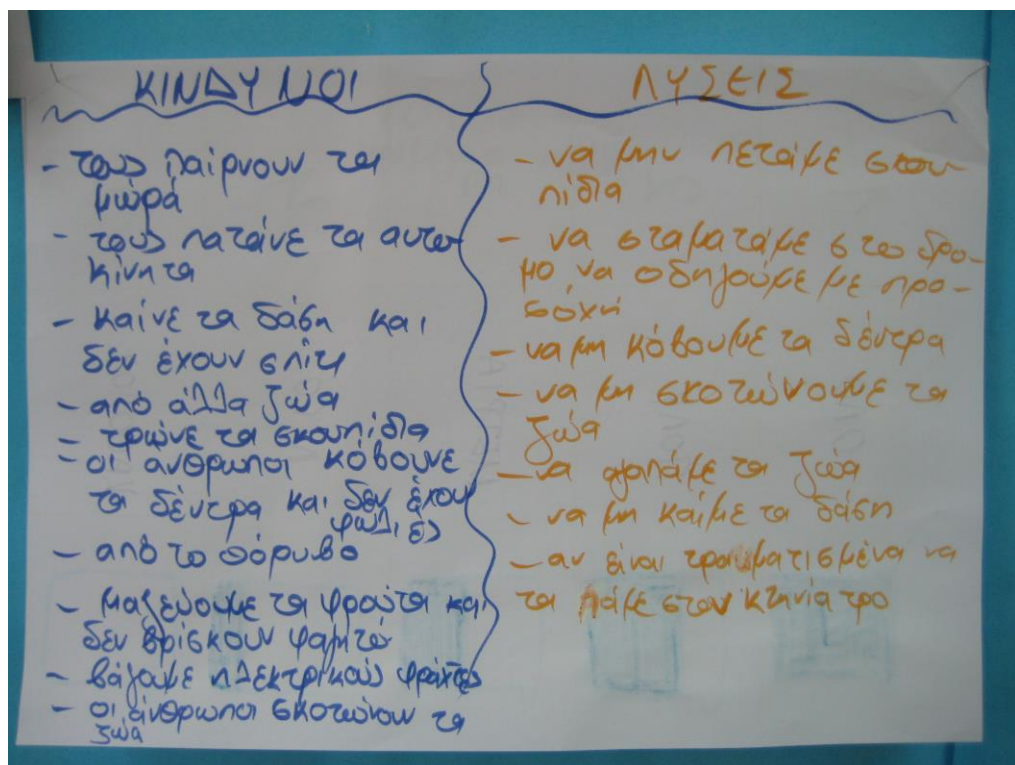 ΚΙΝΔΥΝΟΙ
- τους παίρνουν τα
μωρά
- τους πατάνε τα αυτο-
κίνητα
- καίνε τα δάση και
δεν έχουν σπίτι
- από άλλα ζώα
- τρώνε τα σκουπίδια
- οι άνθρωποι κόβουνε
τα δέντρα και δεν έχουν
φωλιές
- από το θόρυβο
- μαζεύουμε τα φρούτα και
δεν βρίσκουν φαγητό
- βάζουμε ηλεκτρικούς φράχτες
- οι άνθρωποι σκοτώνουν τα
ζώα
ΛΥΣΕΙΣ
- να μην πετάμε σκου-
πίδια
- να σταματάμε στο δρο-
μο, να οδηγούμε με προ-
σοχή
- να μη κόβουμε τα δέντρα
- να μη σκοτώνουμε τα
ζώα
- να αγαπάμε τα ζώα
- να μη καίμε τα δάση
- αν είναι τραυματισμένα να
τα πάμε στον κτηνίατρο